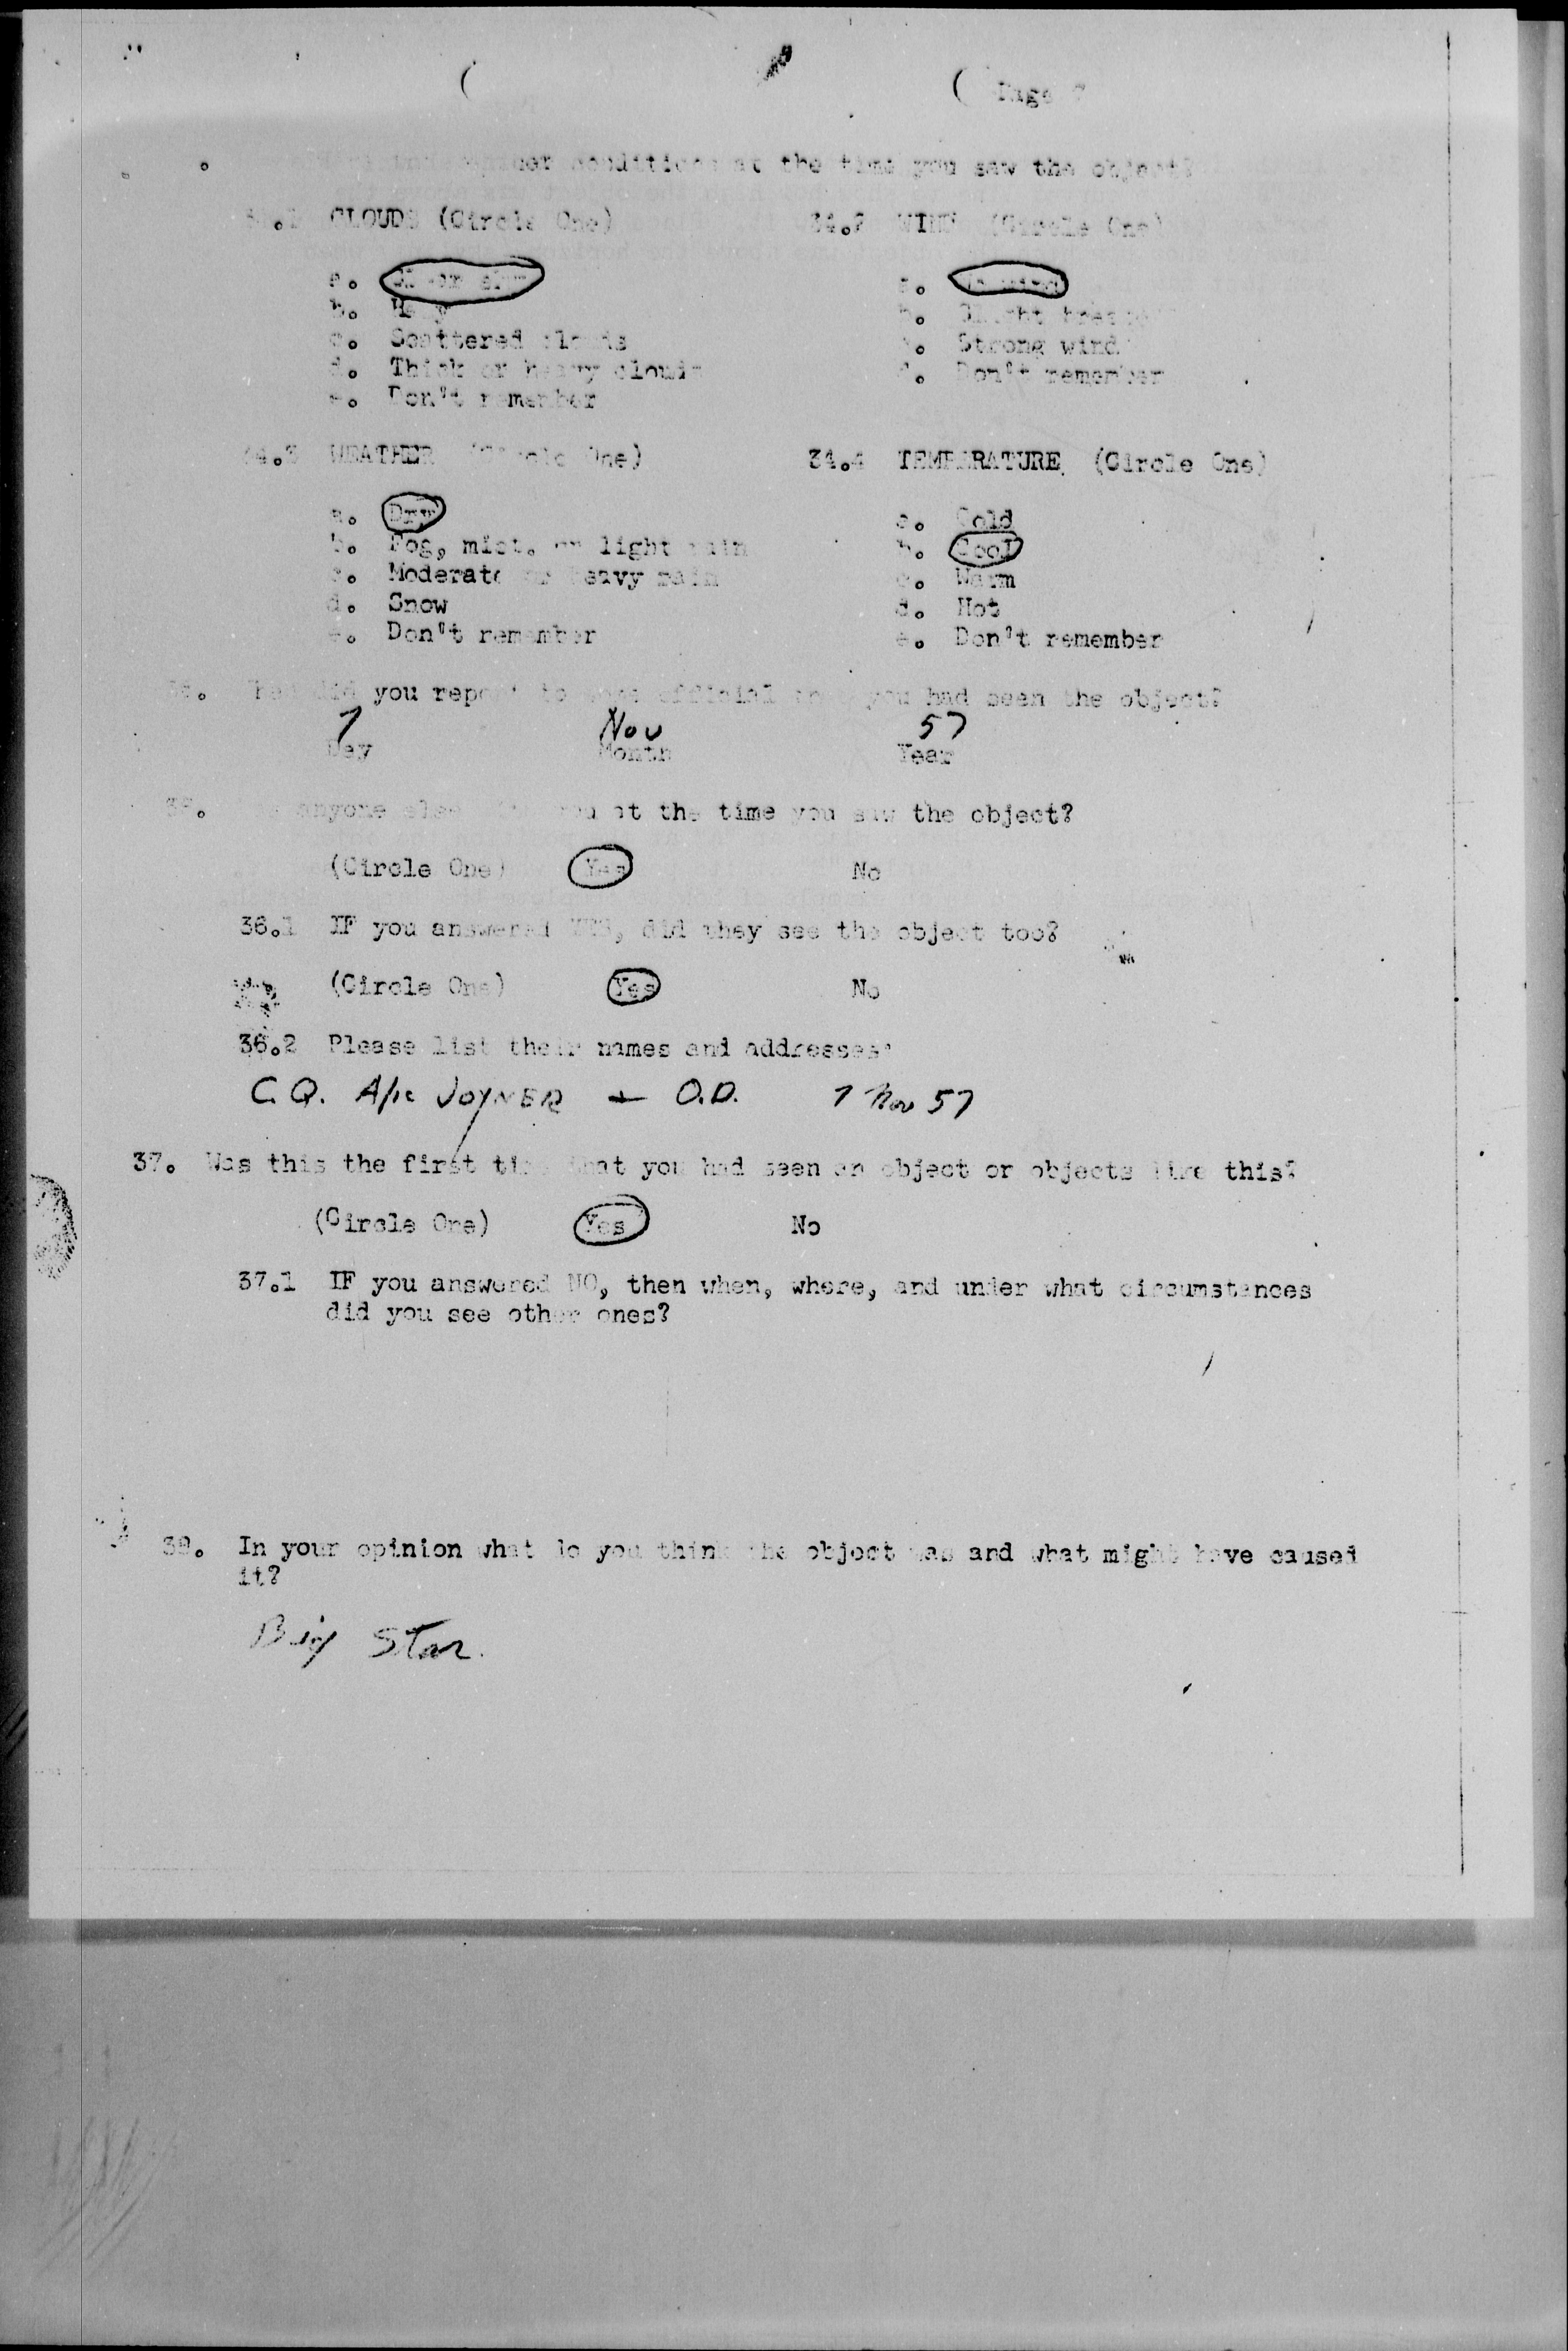 Page 7
conditions at the time you saw the object?
CLOUDS (Circle One) 34.2 WIND (Circle One)
a. Clear sky a. No wind
b. Hazy b. Slight breeze
c. Scattered clouds c. Strong wind
d. Thick or heavy clouds d. Don't remember
e. Don't remember
34.3 WEATHER (Circle One) 34.4 TEMPERATURE (Circle One)
a. Dry a. Cold
b. Fog, mist, or light rain b. Cool
c. Moderate or heavy rain c. Warm
d. Snow d. Hot
e. Don't remember e. Don't remember
did you report to some official that you had seen the object?
7 Nov 57
Day Month Year
anyone else at the time you saw the object?
(Circle One) Yes No
36.1 IF you answered YES, did they see the object too?
(Circle One) Yes No
36.2 Please list their names and addresses:
C.Q. A/1c JOYNER + O.D. 7 Nov 57
37. Was this the first time that you had seen an object or objects like this?
(Circle One) Yes No
37.1 IF you answered NO, then when, where, and under what circumstances
did you see other ones?
38. In your opinion what do you think the object was and what might have caused
it?
Big Star.